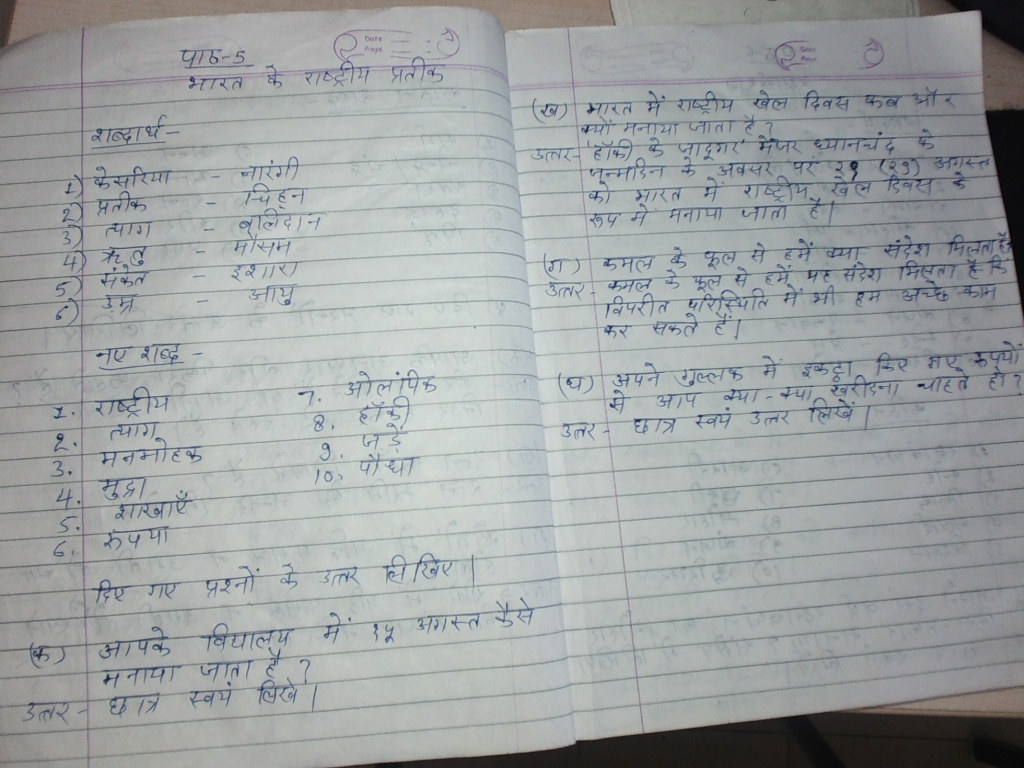 पाठ-5
भारत के राष्ट्रीय प्रतीक
शब्दार्थ -
1) केसरिया - नारंगी
2) प्रतीक - चिह्न
3) त्याग - बलिदान
4) ऋतु - मौसम
5) संकेत - इशारा
6) उम्र - आयु
नए शब्द -
1. राष्ट्रीय
2. त्याग
3. मनमोहक
4. मुद्रा
5. शाखाएँ
6. रुपया
7. ओलंपिक
8. हॉकी
9. जड़ें
10. पौधा
दिए गए प्रश्नों के उत्तर लिखिए।
(क) आपके विद्यालय में १५ अगस्त कैसे
मनाया जाता है ?
उत्तर - छात्र स्वयं लिखें।
Date
Page
(ख) भारत में राष्ट्रीय खेल दिवस कब और
क्यों मनाया जाता है ?
उत्तर - 'हॉकी के जादूगर' मेजर ध्यानचंद के
जन्मदिन के अवसर पर २९ (२९) अगस्त
को भारत में राष्ट्रीय खेल दिवस के
रूप में मनाया जाता है।
(ग) कमल के फूल से हमें क्या संदेश मिलता है?
उत्तर - कमल के फूल से हमें यह संदेश मिलता है कि
विपरीत परिस्थिति में भी हम अच्छे काम
कर सकते हैं।
(घ) अपने गुल्लक में इकट्ठा किए गए रुपयों
से आप क्या-क्या खरीदना चाहते हो ?
उत्तर - छात्र स्वयं उत्तर लिखें।
Date
Page